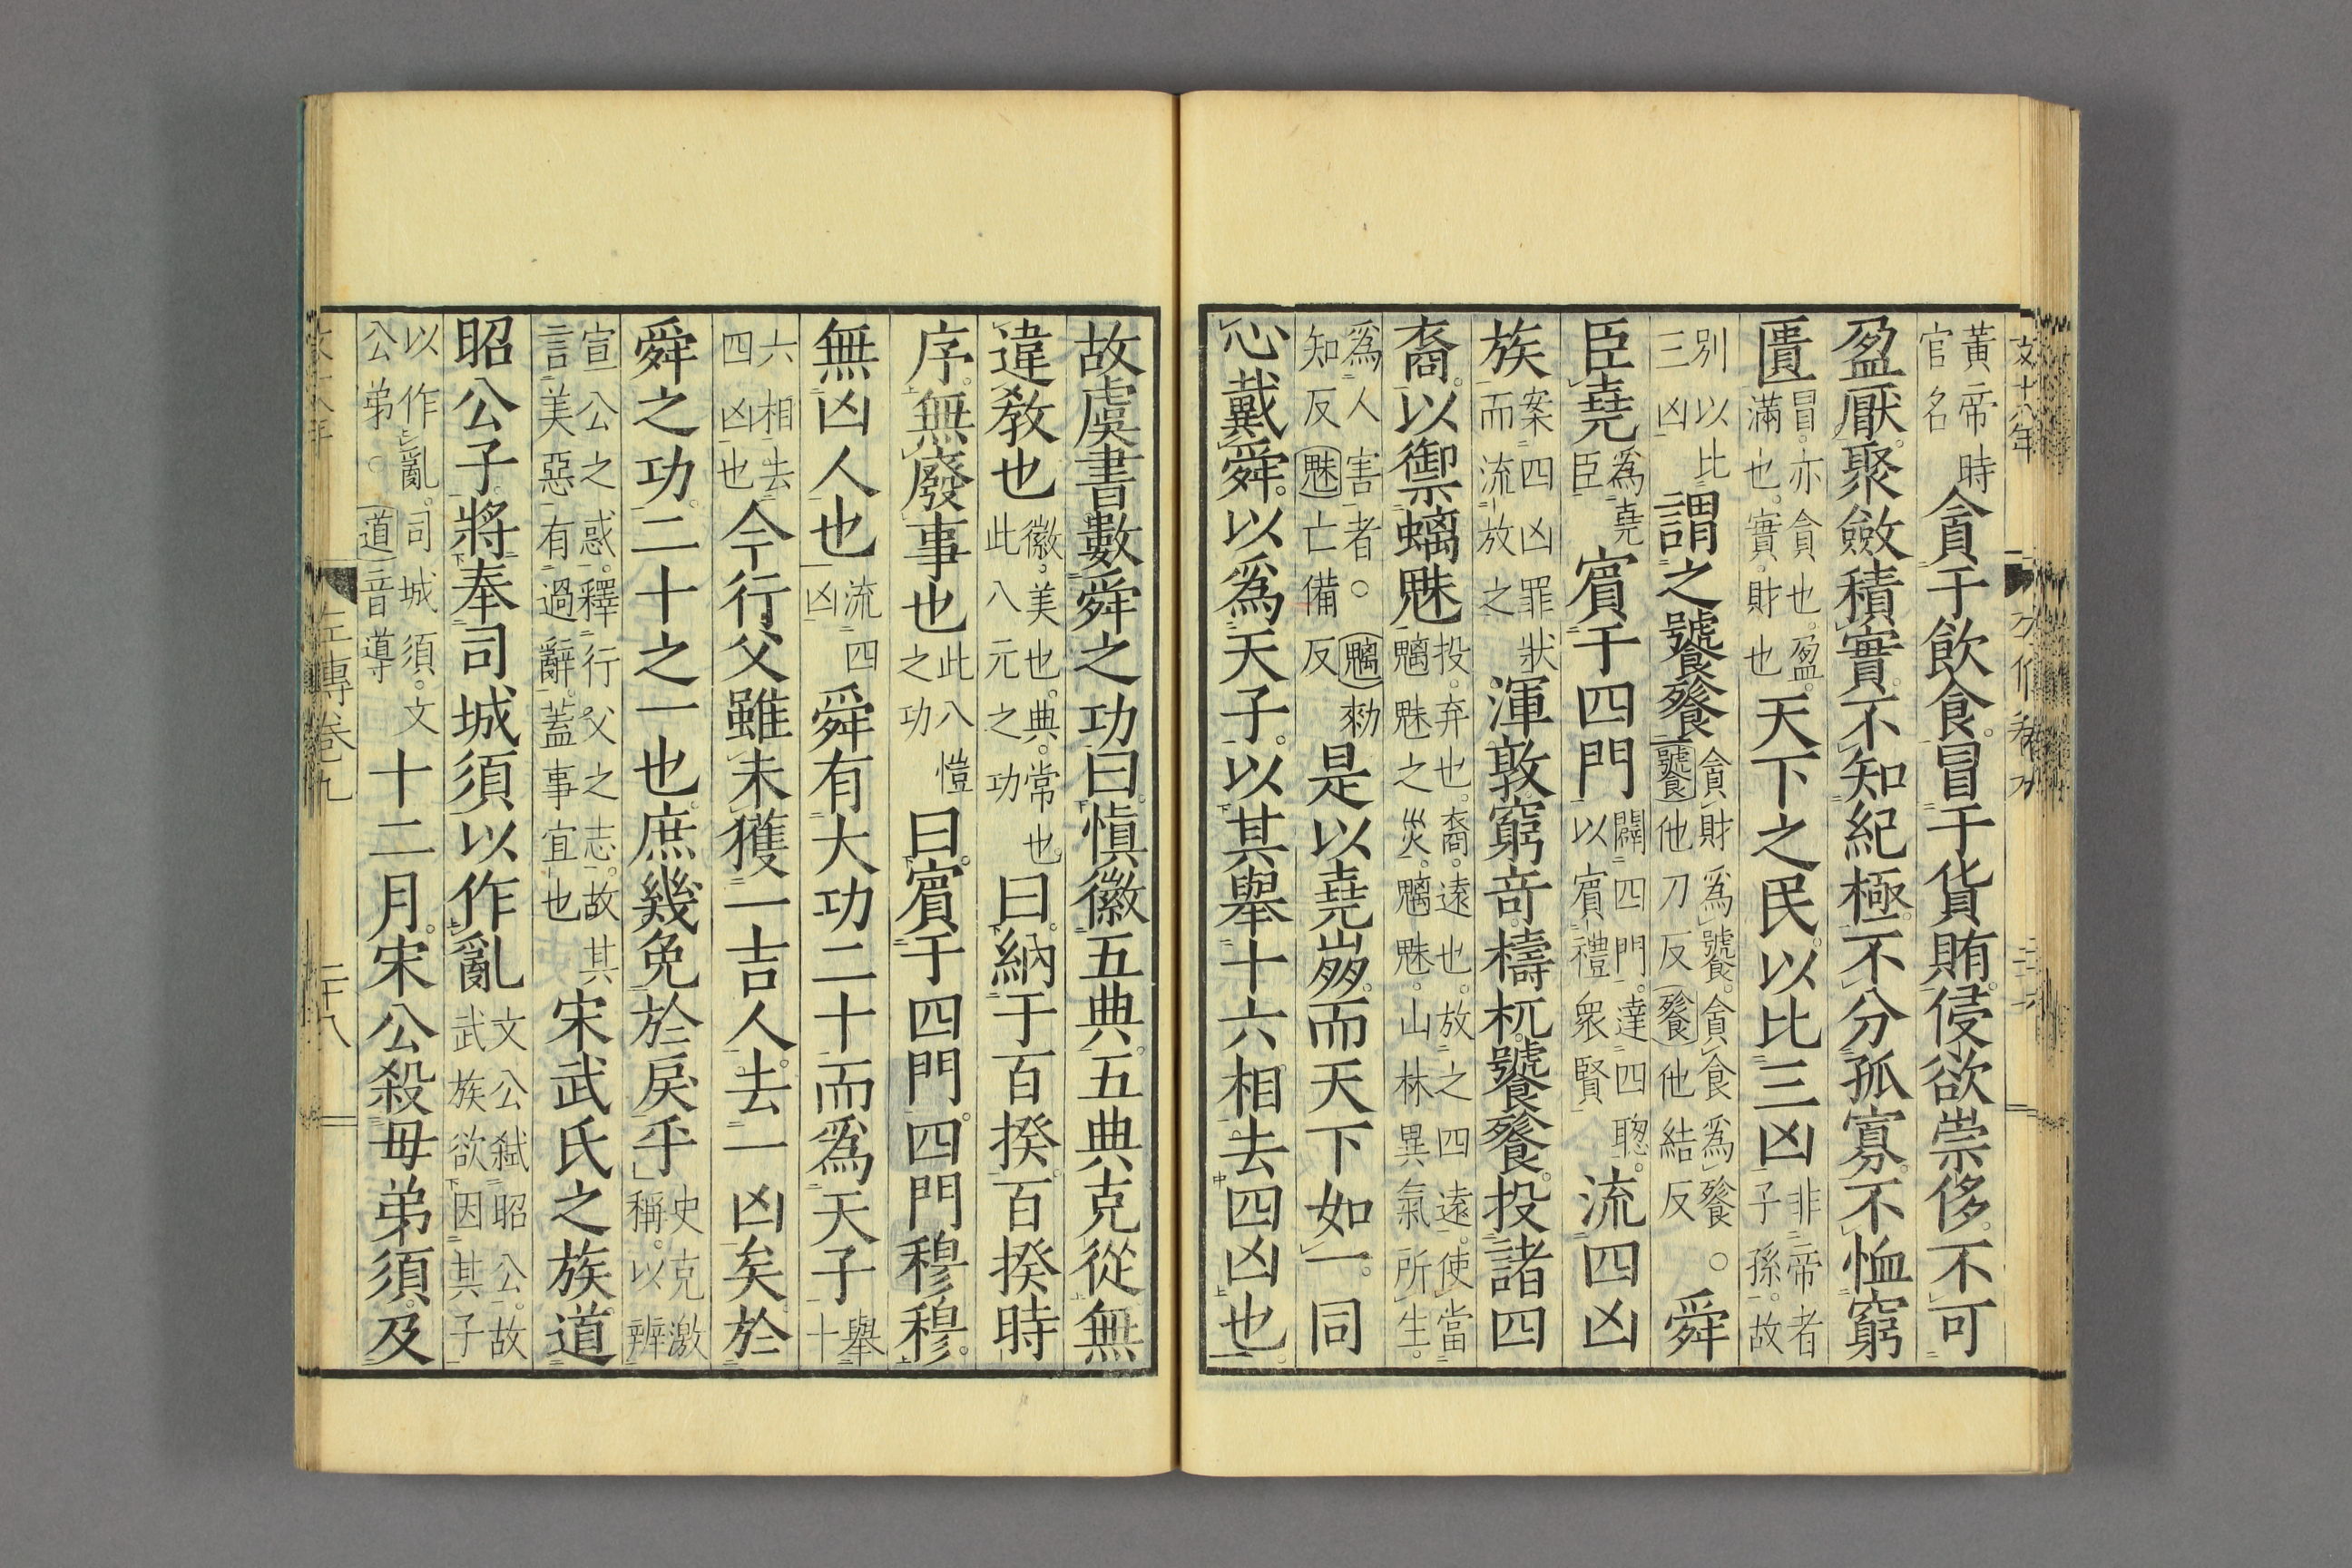 文十八年
黃帝時官名貪于飮食。冒于貨賄。侵欲崇侈。不可
盈厭。聚斂積實。不知紀極。不分孤寡。不恤窮
匱冒。亦貪也。盈。滿也。實。財也天下之民。以比三凶非帝者子孫。故
別以比三凶謂之饕餮貪財爲饕。貪食爲餮。○饕他刀反餮他結反舜
臣堯爲堯臣賓于四門闢四門。達四聰。以賓禮衆賢流四凶
族案四凶罪狀而流放之渾敦。窮奇。檮杌。饕餮。投諸四
裔。以禦螭魅投。弃也。裔。遠也。放之四遠。使當魑魅之災。魑魅。山林異氣所生。
爲人害者。○魑勑知反魅亡備反是以堯崩。而天下如一。同
心戴舜。以爲天子。以其舉十六相。去四凶也。
故虞書數舜之功。曰。愼徽五典。五典克從。無
違敎也徽。美也。典。常也。此八元之功曰。納于百揆。百揆時
序。無廢事也此八愷之功曰。賓于四門。四門穆穆。
無凶人也流四凶舜有大功二十而爲天子舉十
六相去四凶也今行父雖未獲一吉人。去一凶矣。於
舜之功。二十之一也。庶幾免於戾乎史克激稱。以辨
宣公之惑。釋行父之志。故其言美惡有過辭。蓋事宜也宋武氏之族。道
昭公子。將奉司城須以作亂文公弒昭公。故武族欲因其子
以作亂。司城須。文公弟。○道音導十二月。宋公殺毋弟須。及
左傳卷九
二十八